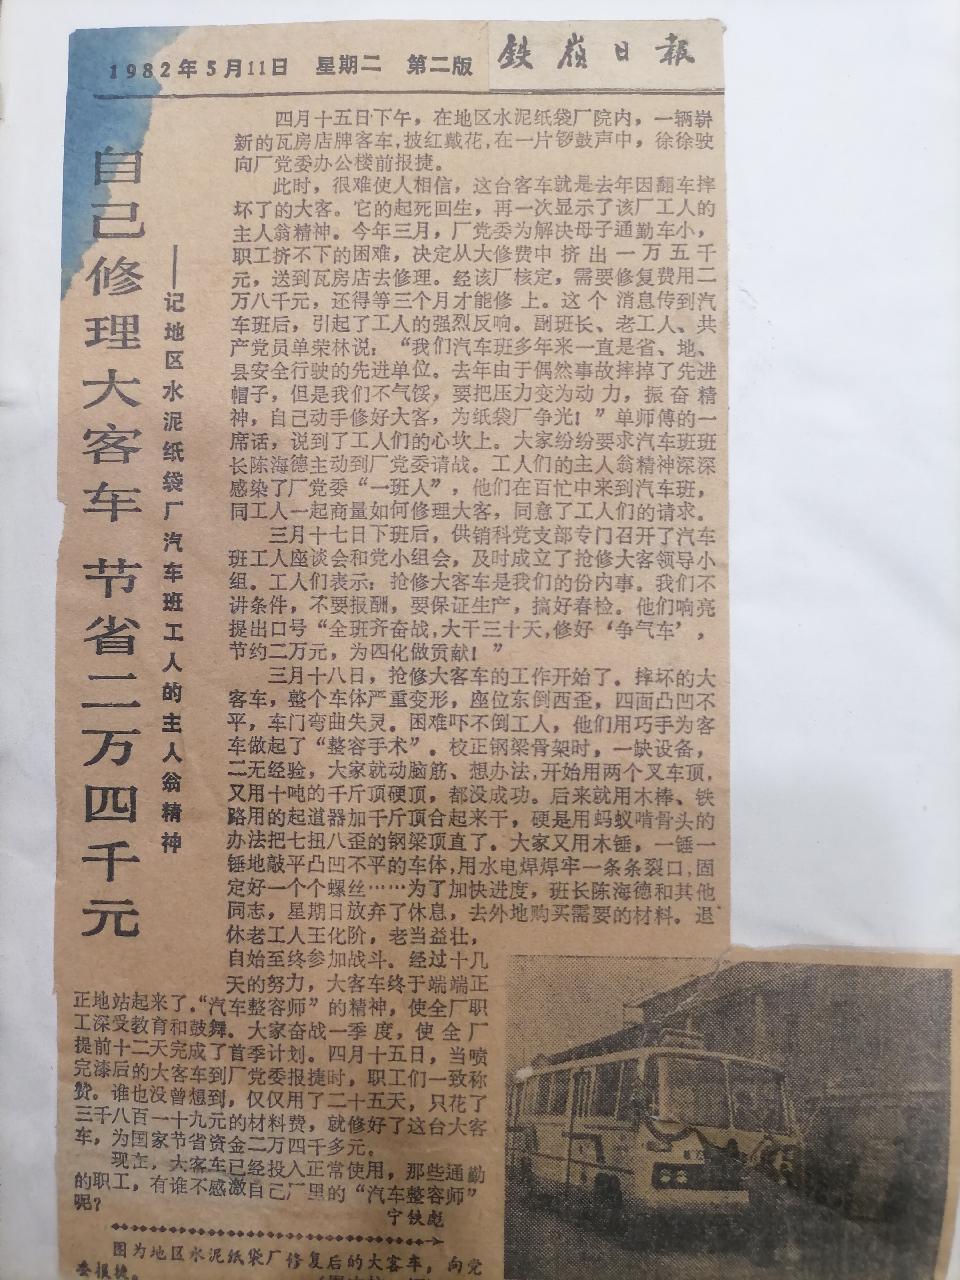 1982年5月11日　星期二　第二版　铁岭日报
自己修理大客车 节省二万四千元
——记地区水泥纸袋厂汽车班工人的主人翁精神
四月十五日下午，在地区水泥纸袋厂院内，一辆崭
新的瓦房店牌客车，披红戴花，在一片锣鼓声中，徐徐驶
向厂党委办公楼前报捷。
此时，很难使人相信，这台客车就是去年因翻车摔
坏了的大客。它的起死回生，再一次显示了该厂工人的
主人翁精神。今年三月，厂党委为解决母子通勤车小，
职工挤不下的困难，决定从大修费中挤出一万五千
元，送到瓦房店去修理。经该厂核定，需要修复费用二
万八千元，还得等三个月才能修上。这个消息传到汽
车班后，引起了工人的强烈反响。副班长、老工人、共
产党员单荣林说：“我们汽车班多年来一直是省、地、
县安全行驶的先进单位。去年由于偶然事故摔掉了先进
帽子，但是我们不气馁，要把压力变为动力，振奋精
神，自己动手修好大客，为纸袋厂争光！”单师傅的一
席话，说到了工人们的心坎上。大家纷纷要求汽车班班
长陈海德主动到厂党委请战。工人们的主人翁精神深深
感染了厂党委“一班人”，他们在百忙中来到汽车班，
同工人一起商量如何修理大客，同意了工人们的请求。
三月十七日下班后，供销科党支部专门召开了汽车
班工人座谈会和党小组会，及时成立了抢修大客领导小
组。工人们表示：抢修大客车是我们的份内事。我们不
讲条件，不要报酬，要保证生产，搞好春检。他们响亮
提出口号“全班齐奋战，大干三十天，修好‘争气车’，
节约二万元，为四化做贡献！”
三月十八日，抢修大客车的工作开始了。摔坏的大
客车，整个车体严重变形，座位东倒西歪，四面凸凹不
平，车门弯曲失灵。困难吓不倒工人，他们用巧手为客
车做起了“整容手术”。校正钢梁骨架时，一缺设备，
二无经验，大家就动脑筋、想办法，开始用两个叉车顶，
又用十吨的千斤顶硬顶，都没成功。后来就用木棒、铁
路用的起道器加千斤顶合起来干，硬是用蚂蚁啃骨头的
办法把七扭八歪的钢梁顶直了。大家又用木锤，一锤一
锤地敲平凸凹不平的车体，用水电焊焊牢一条条裂口，固
定好一个个螺丝……为了加快进度，班长陈海德和其他
同志，星期日放弃了休息，去外地购买需要的材料。退
休老工人王化阶，老当益壮，
自始至终参加战斗。经过十几
天的努力，大客车终于端端正
正地站起来了。“汽车整容师”的精神，使全厂职
工深受教育和鼓舞。大家奋战一季度，使全厂
提前十二天完成了首季计划。四月十五日，当喷
完漆后的大客车到厂党委报捷时，职工们一致称
赞。谁也没曾想到，仅仅用了二十五天，只花了
三千八百一十九元的材料费，就修好了这台大客
车，为国家节省资金二万四千多元。
现在，大客车已经投入正常使用，那些通勤
的职工，有谁不感激自己厂里的“汽车整容师”
呢？
宁铁彪
图为地区水泥纸袋厂修复后的大客车，向党
委报捷。